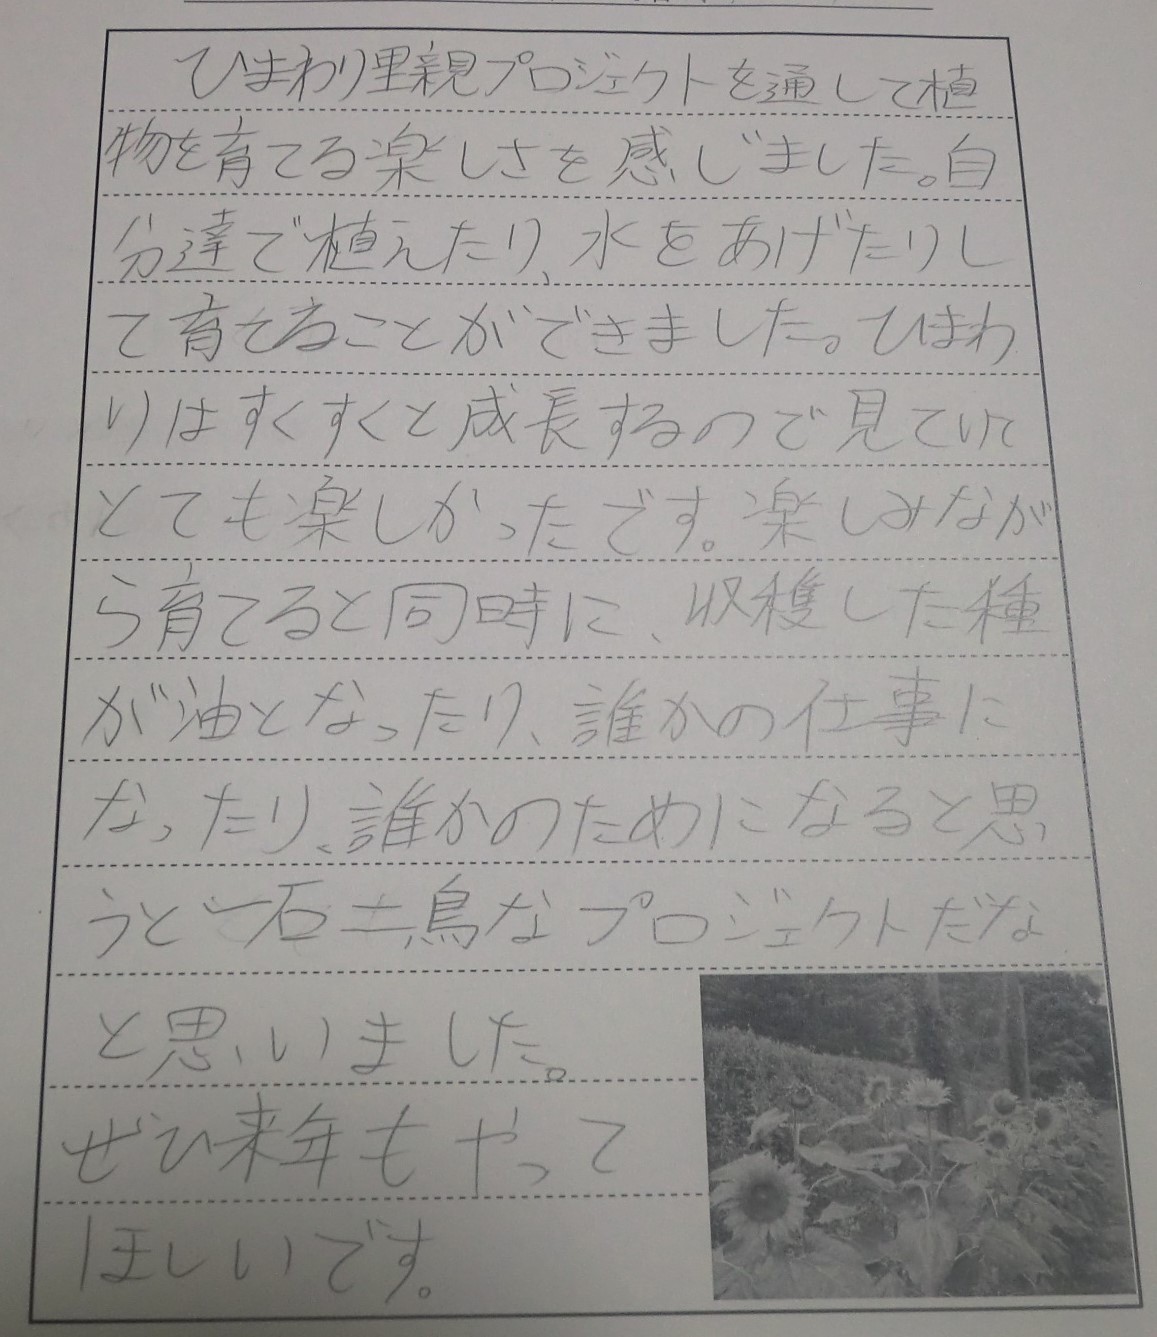 ひまわり里親プロジェクトを通して植
物を育てる楽しさを感じました。自
分達で植えたり、水をあげたりし
て育てることができました。ひまわ
りはすくすくと成長するので見ていて
とても楽しかったです。楽しみなが
ら育てると同時に、収穫した種
が油となったり、誰かの仕事に
なったり、誰かのためになると思
うと一石二鳥なプロジェクトだな
と思いました。
ぜひ来年もやって
ほしいです。